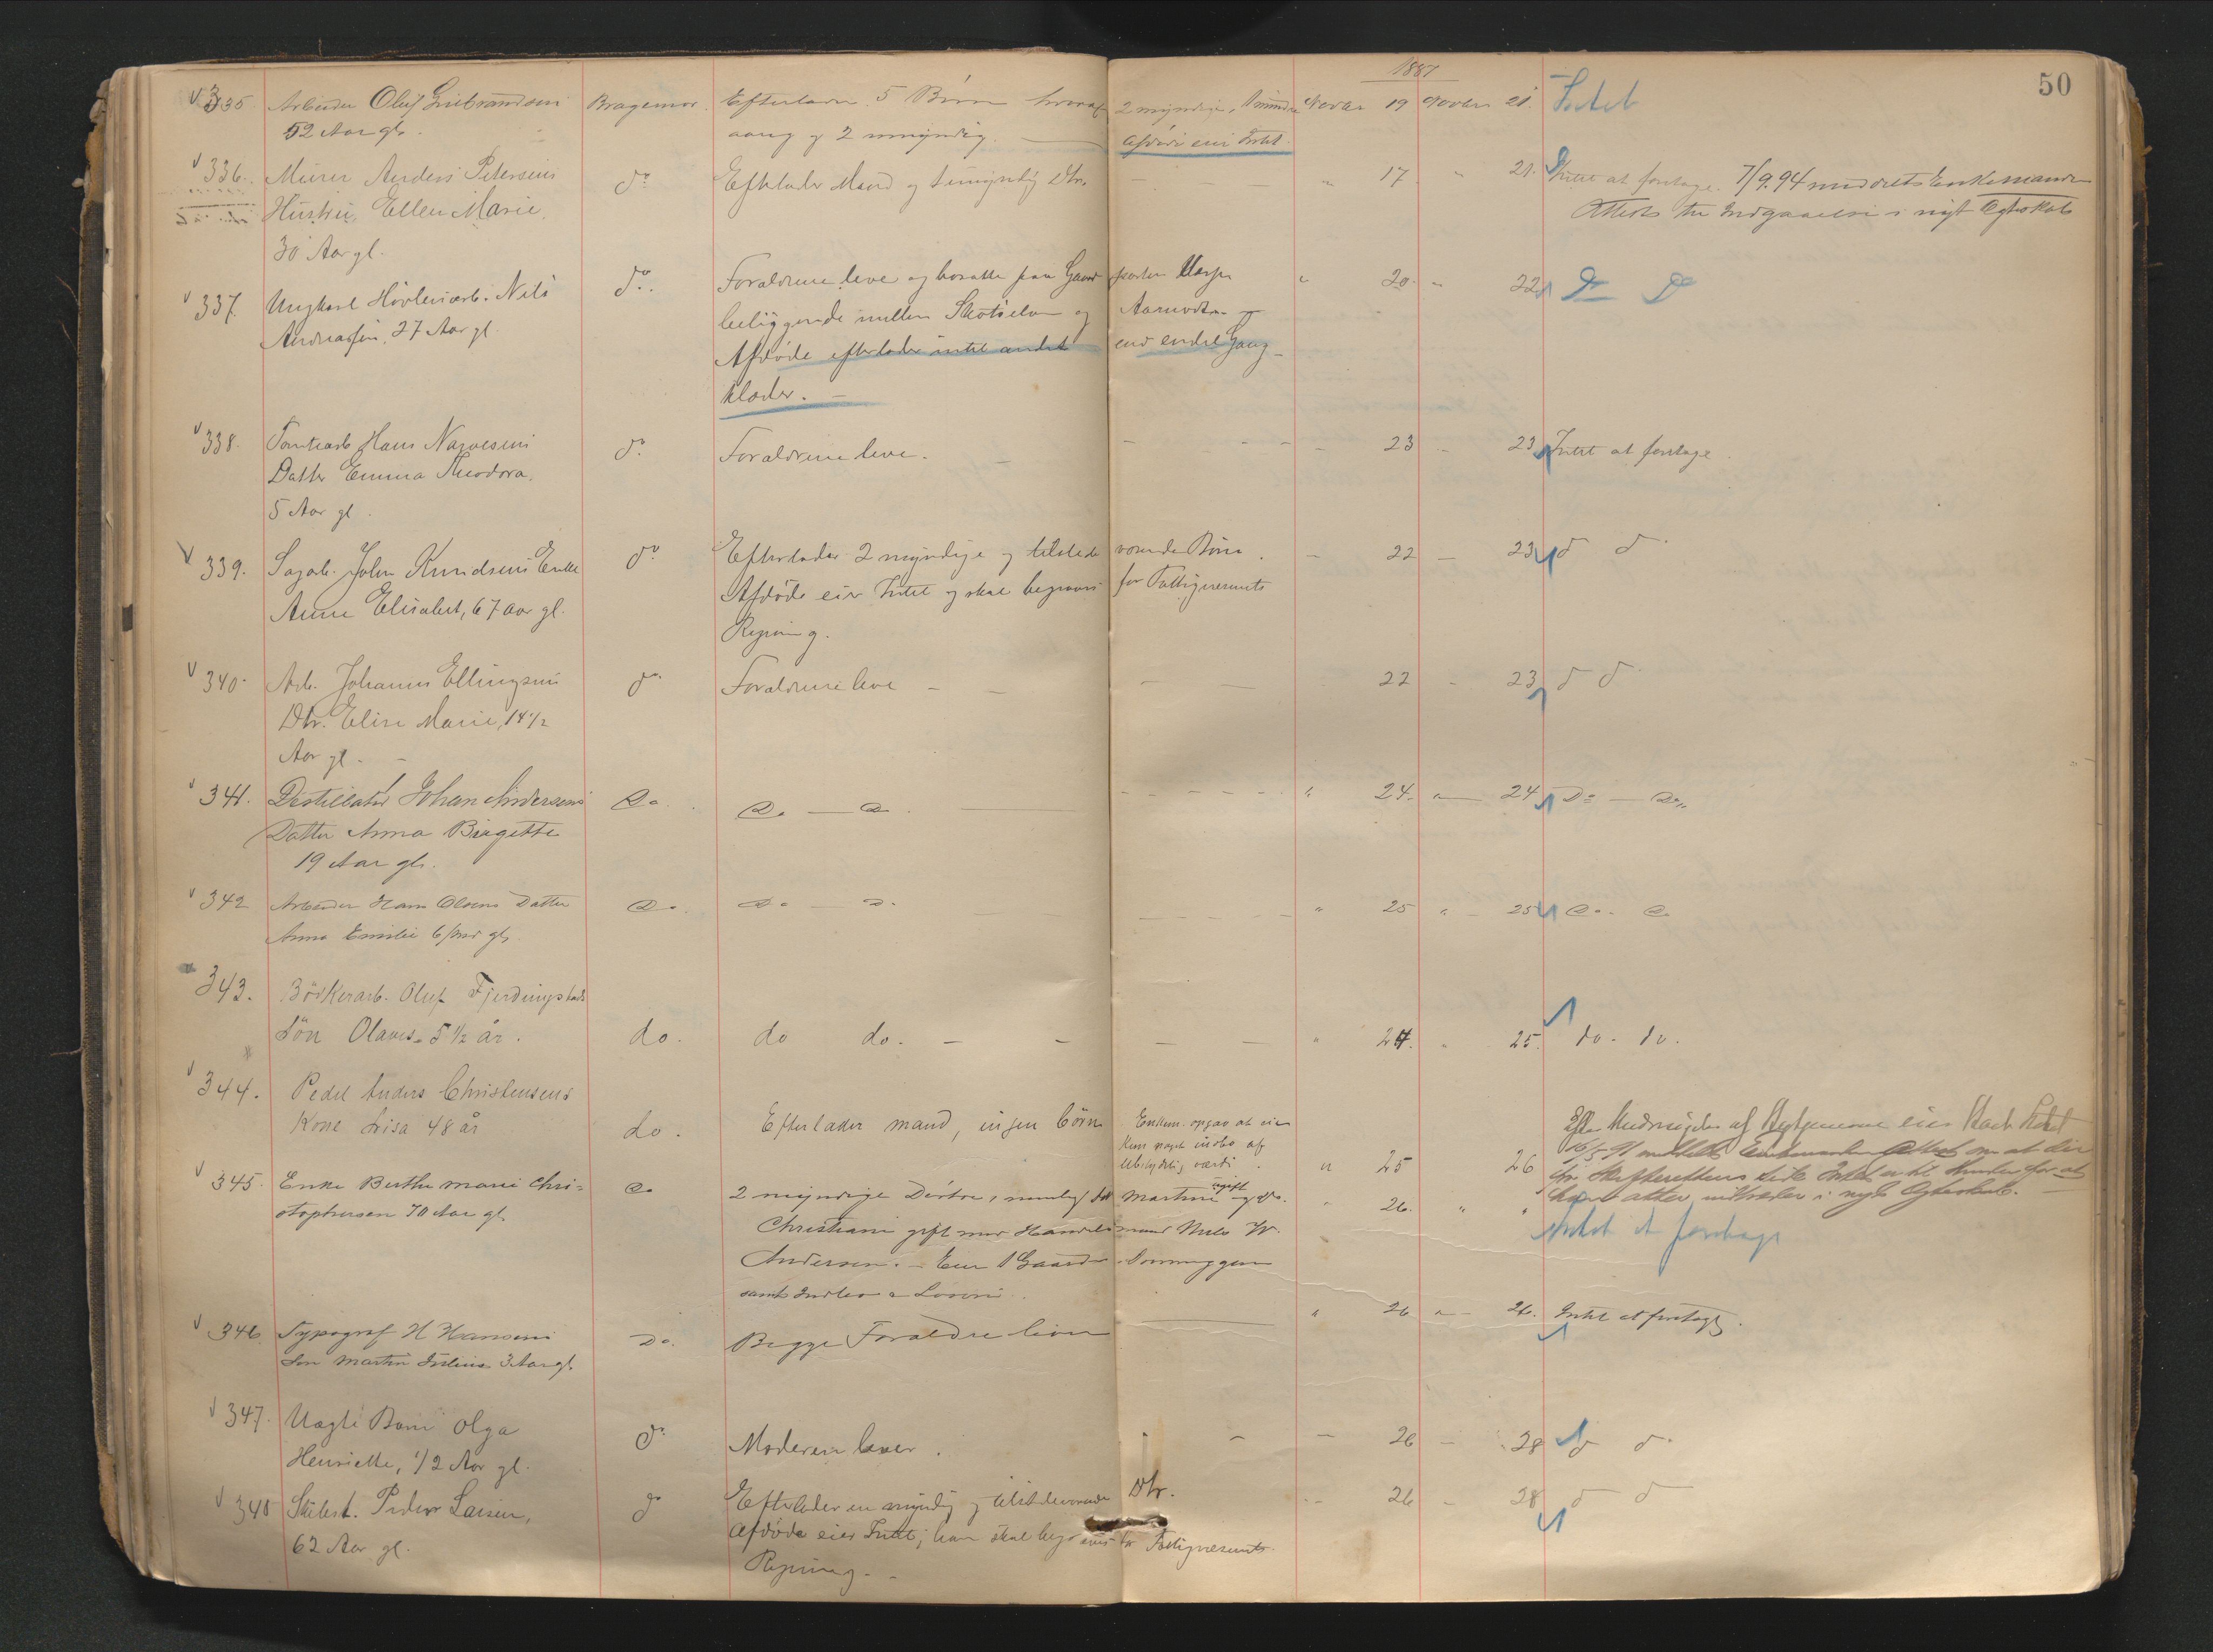 1887
50
335. Arbeider Oluf Gulbrandsen Bragernes. Efterlader 5 Børn hvoraf 2 myndige, Novbr 19 Novbr 21. Intet
52 Aar gl. og 2 umyndig. Afdöde eier Intet
336. Murer Anders Petersens do Efterlader Mand og 1 umyndig Dtr. — — — " 17 " 21. Intet at foretage. 7/9.94 meddelt Enkemanden
Hustru Ellen Marie Attest til Indgaaelse i nyt Egteskab
30 Aar gl.
337. Ungkarl Høvleriarb. Nils do. Foraldrene leve og bosatte paa Gaardparten " 20 " 22 do do
Andreasen, 27 Aar gl. beliggende mellem Skotselven og Aamodt. —
Afdöde efterlader intet andet end endel Gang-
klæder. —
338. Tomtearb Hans Narvesens do. Foraldrene leve. — — — — 23 — 23 Intet at foretage.
Datter Emma Theodora,
5 Aar gl.
339. Sagarb. John Knudsens Enke do Efterlader 2 myndige og tilstede værende Börn. — 22 — 23 d d
Anne Elisabet, 67 aar gl. Afdöde eier Intet og skal begraves for Fattigvæsenets
Regning.
340. Arb. Johannes Ellingsens do. Foraldrene leve — — — — 22 — 23 d d
Dtr. Elise Marie, 14 1/2
Aar gl. —
341. Destillatör Johan Andersens Do Do — Do. — — — — " 24. " — 24 Do — Do
Datter Anna Birgette
19 Aar gl.
342 Arbeider Hans Olsens Datter Do. Do — Do. — — — — " 25 " — 25 Do. Do
Anna Emilie 6 Mdr gl.
343. Bödkerarb. Oluf Fjerdingstads
Sön Olaves. 5 1/2 år. do. do do. — — — — " 24. " 25. do. do.
344. Pedel Anders Christensens
Kone Lisa 48 år do. Efterlader mand, ingen börn Enkem. opgav at eie
kun noget indbo af
ubetydelig værdi. " 25 26
Efter Undersögelse af eies Intet
16/5 91 meddelt Enkemanden Attest om at der
fra Skifterettens Side Intet er til Hinder for at
han atter indtræder i nyt Egteskab. —
345. Enke Berthe Marie Chri= Do 2 myndige Döttre, nemlig Martine ugift og " 26. " " Intet at foretage
stophersen 70 Aar gl. Christiane gift med Handelsmand Nils W.
Andersen. — Eier 1 Gaard
samt Indbo
346. Typograf H Hansens Do. Begge Foraldre lever — " 26 " — 26. Intet at foretage.
Sön Martin Julius 3 Aar gl.
347. Uægte Barn Olga do Moderen lever. — — 26 — 28 d d
Henriette, 1/2 Aar gl.
348 Peder Larsen, do Efterlader en myndig og tilstedeværende Dtr. — 26 — 28 d d
62 Aar gl. Afdöde eier Intet; han skal begraves for Fattigvæsenets
Regning. —